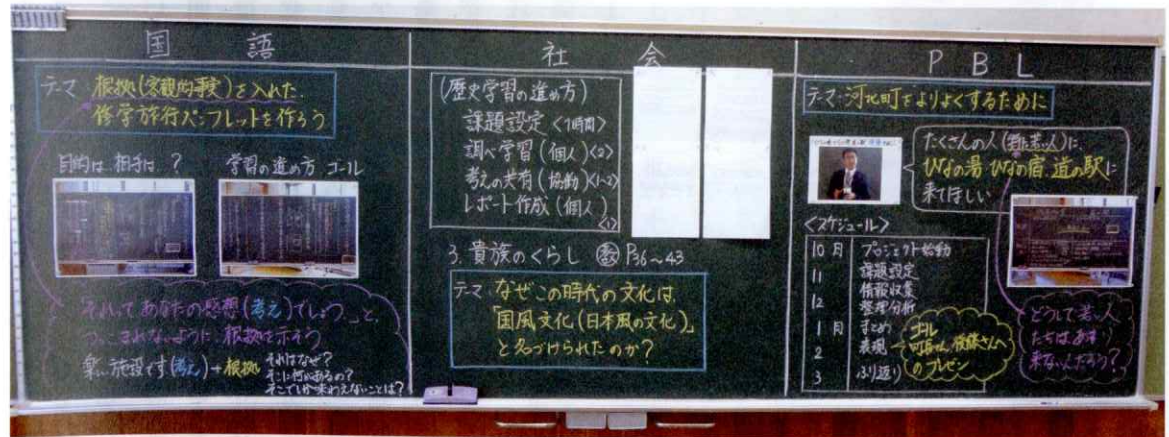 国語
テーマ 根拠(客観的事実)を入れた、
修学旅行パンフレットを作ろう
目的は、相手は？
学習の進め方 ゴール
「それってあなたの感想(考え)でしょう。」と、
つっこまれないように、根拠を示そう
楽しい施設です(考え)+根拠
それはなぜ？
そこに何があるの？
そこでしか味わえないことは？
社会
(歴史学習の進め方)
課題設定〈1時間〉
調べ学習(個人)〈2〉
考えの共有(協働)〈1~2〉
レポート作成(個人)
〈1〉
3. 貴族のくらし 教 P36~43
テーマ なぜこの時代の文化は、
「国風文化(日本風の文化)」
と名づけられたのか？
PBL
テーマ:河北町をよりよくするために
たくさんの人(特に若い人)に、
ひなの湯 ひなの宿、道の駅に
来てほしい
〈スケジュール〉
10月 プロジェクト始動
11 課題設定
情報収集
12 整理分析
1月 まとめ
2 表現
3 ふり返り
ゴール
町長さん、後藤さんへ
のプレゼン
どうして若い人
たちはあまり
来ないんだろう？